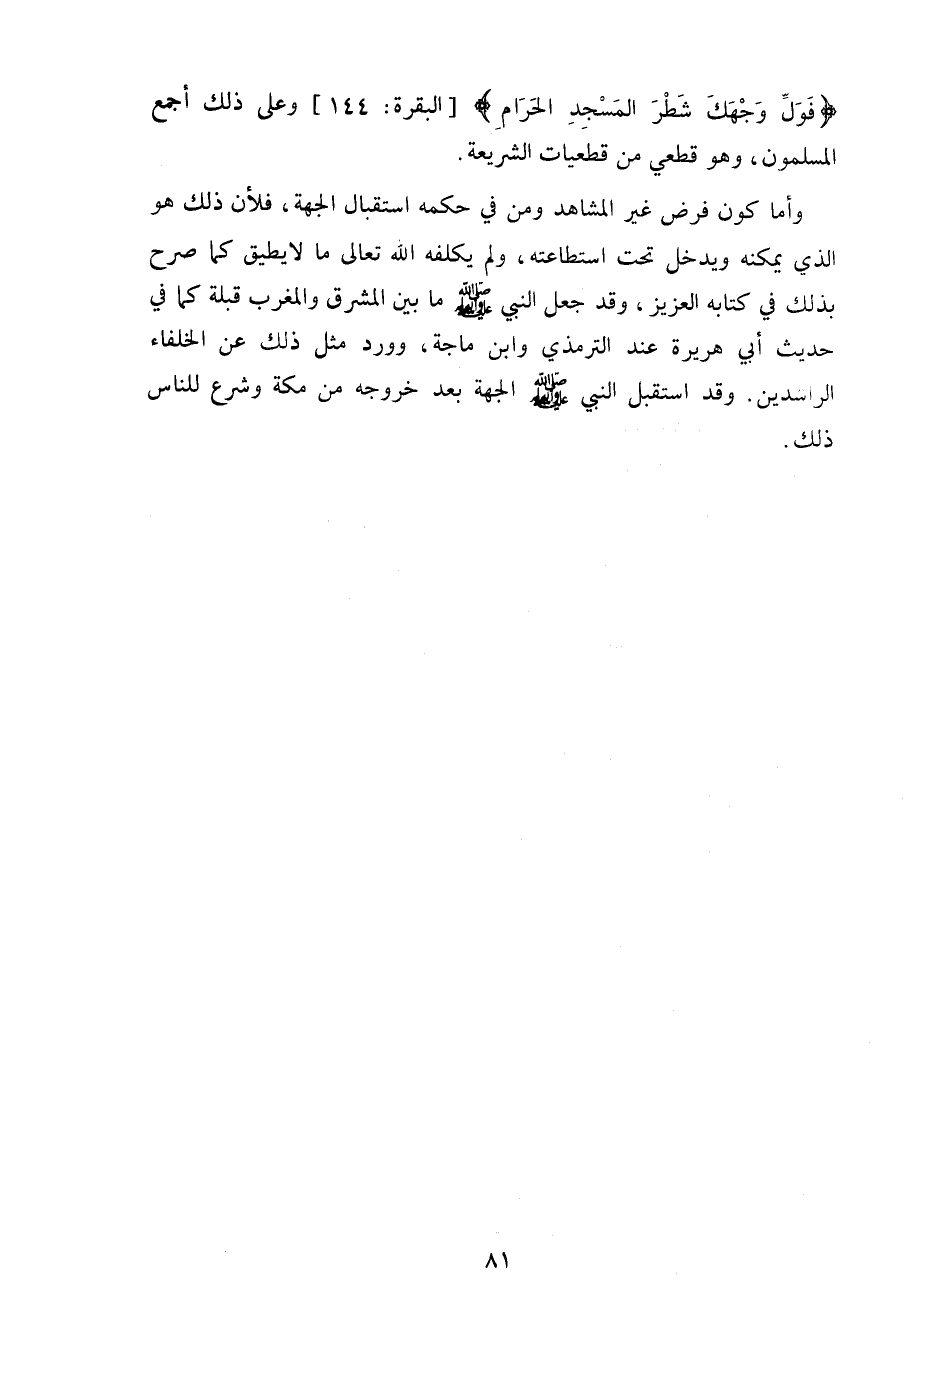 ﴿فَوَلِّ وَجْهَكَ شَطْرَ المَسْجِدِ الحَرَامِ﴾ [البقرة: ١٤٤] وعلى ذلك أجمع
المسلمون، وهو قطعي من قطعيات الشريعة.
وأما كون فرض غير المشاهد ومن في حكمه استقبال الجهة، فلأن ذلك هو
الذي يمكنه ويدخل تحت استطاعته، ولم يكلفه الله تعالى ما لايطيق كما صرح
بذلك في كتابه العزيز، وقد جعل النبي ﷺ ما بين المشرق والمغرب قبلة كما في
حديث أبي هريرة عند الترمذي وابن ماجة، وورد مثل ذلك عن الخلفاء
الراشدين. وقد استقبل النبي ﷺ الجهة بعد خروجه من مكة وشرع للناس
ذلك.
٨١